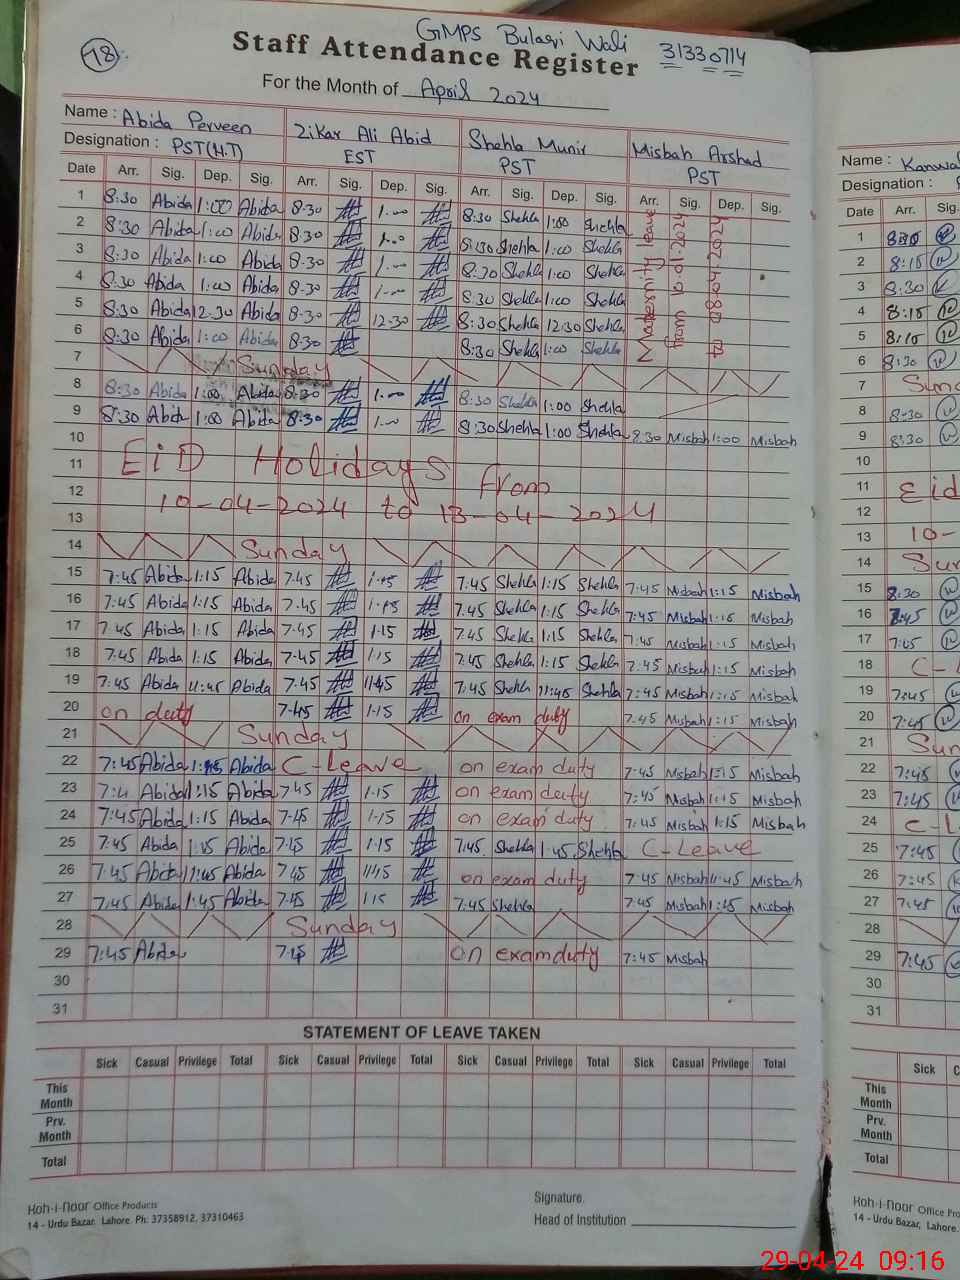 GMPS Bulaqi Wali 31330714
78
Staff Attendance Register
For the Month of April 2024
Name : Abida Perveen Zikar Ali Abid Shehla Munir Misbah Arshad
Designation : PST(H.T) EST PST PST
Date Arr. Sig. Dep. Sig. Arr. Sig. Dep. Sig. Arr. Sig. Dep. Sig. Arr. Sig. Dep. Sig.
1 8:30 Abida 1:00 Abida 8-30 1-00 8:30 Shehla 1:00 Shehla
2 8:30 Abida 1:00 Abida 8-30 1-00 8:30 Shehla 1:00 Shehla
3 8:30 Abida 1:00 Abida 8-30 1-00 8:30 Shehla 1:00 Shehla
4 8:30 Abida 1:00 Abida 8-30 1-00 8:30 Shehla 1:00 Shehla
5 8:30 Abida 12-30 Abida 8-30 12-30 8:30 Shehla 12:30 Shehla
6 8:30 Abida 1:00 Abida 8:30 8:30 Shehla 1:00 Shehla
Maternity leave
from 10.01.2024
to 08.04.2024
7 Sunday
8 8:30 Abida 1:00 Abida 8-30 1-00 8:30 Shehla 1:00 Shehla
9 8:30 Abida 1:00 Abida 8-30 1-00 8:30 Shehla 1:00 Shehla 8:30 Misbah 1:00 Misbah
10
11 EiD Holidays from
12 10-04-2024 to 13-04-2024
13
14 Sunday
15 7:45 Abida 1:15 Abida 7-45 1-15 7:45 Shehla 1:15 Shehla 7:45 Misbah 1:15 Misbah
16 7:45 Abida 1:15 Abida 7-45 1-15 7:45 Shehla 1:15 Shehla 7:45 Misbah 1:15 Misbah
17 7:45 Abida 1:15 Abida 7-45 1-15 7:45 Shehla 1:15 Shehla 7:45 Misbah 1:15 Misbah
18 7:45 Abida 1:15 Abida 7-45 1-15 7:45 Shehla 1:15 Shehla 7:45 Misbah 1:15 Misbah
19 7:45 Abida 11:45 Abida 7-45 11-45 7:45 Shehla 11:45 Shehla 7:45 Misbah 1:15 Misbah
20 on duty 7-45 1-15 on exam duty 7:45 Misbah 1:15 Misbah
21 Sunday
22 7:45 Abida Abida C-Leave on exam duty 7:45 Misbah 1:15 Misbah
23 7:4 Abida 1:15 Abida 7-45 1-15 on exam duty 7:45 Misbah 1:15 Misbah
24 7:45 Abida 1:15 Abida 7-45 1-15 on exam duty 7:45 Misbah 1:15 Misbah
25 7:45 Abida 1:15 Abida 7-45 1-15 7:45 Shehla 1:45 Shehla C-Leave
26 7:45 Abida 11:45 Abida 7-45 11-45 on exam duty 7:45 Misbah 11:45 Misbah
27 7:45 Abida 1:45 Abida 7-45 1-15 7:45 Shehla 7:45 Misbah 1:15 Misbah
28 Sunday
29 7:45 Abida 7-45 on exam duty 7:45 Misbah
30
31
STATEMENT OF LEAVE TAKEN
Sick Casual Privilege Total Sick Casual Privilege Total Sick Casual Privilege Total Sick Casual Privilege Total
This Month
Prv. Month
Total
Koh-i-noor Office Products
14 - Urdu Bazar, Lahore. Ph: 37358912, 37310463
Signature.
Head of Institution
Name : Kanwal
Designation :
Date Arr. Sig.
1 8:30
2 8:15
3 8:30
4 8:15
5 8:15
6 8:30
7 Sund
8 8:30
9 8:30
10
11 Eid
12
13 10-
14 Sun
15 8:30
16 7:45
17 7:45
18 C-L
19 7:45
20 7:45
21 Sun
22 7:45
23 7:45
24 C-L
25 7:45
26 7:45
27 7:45
28
29 7:45
30
31
Sick C
This Month
Prv. Month
Total
Koh-i-noor Office Pro
14 - Urdu Bazar, Lahore.
29-04-24 09:16